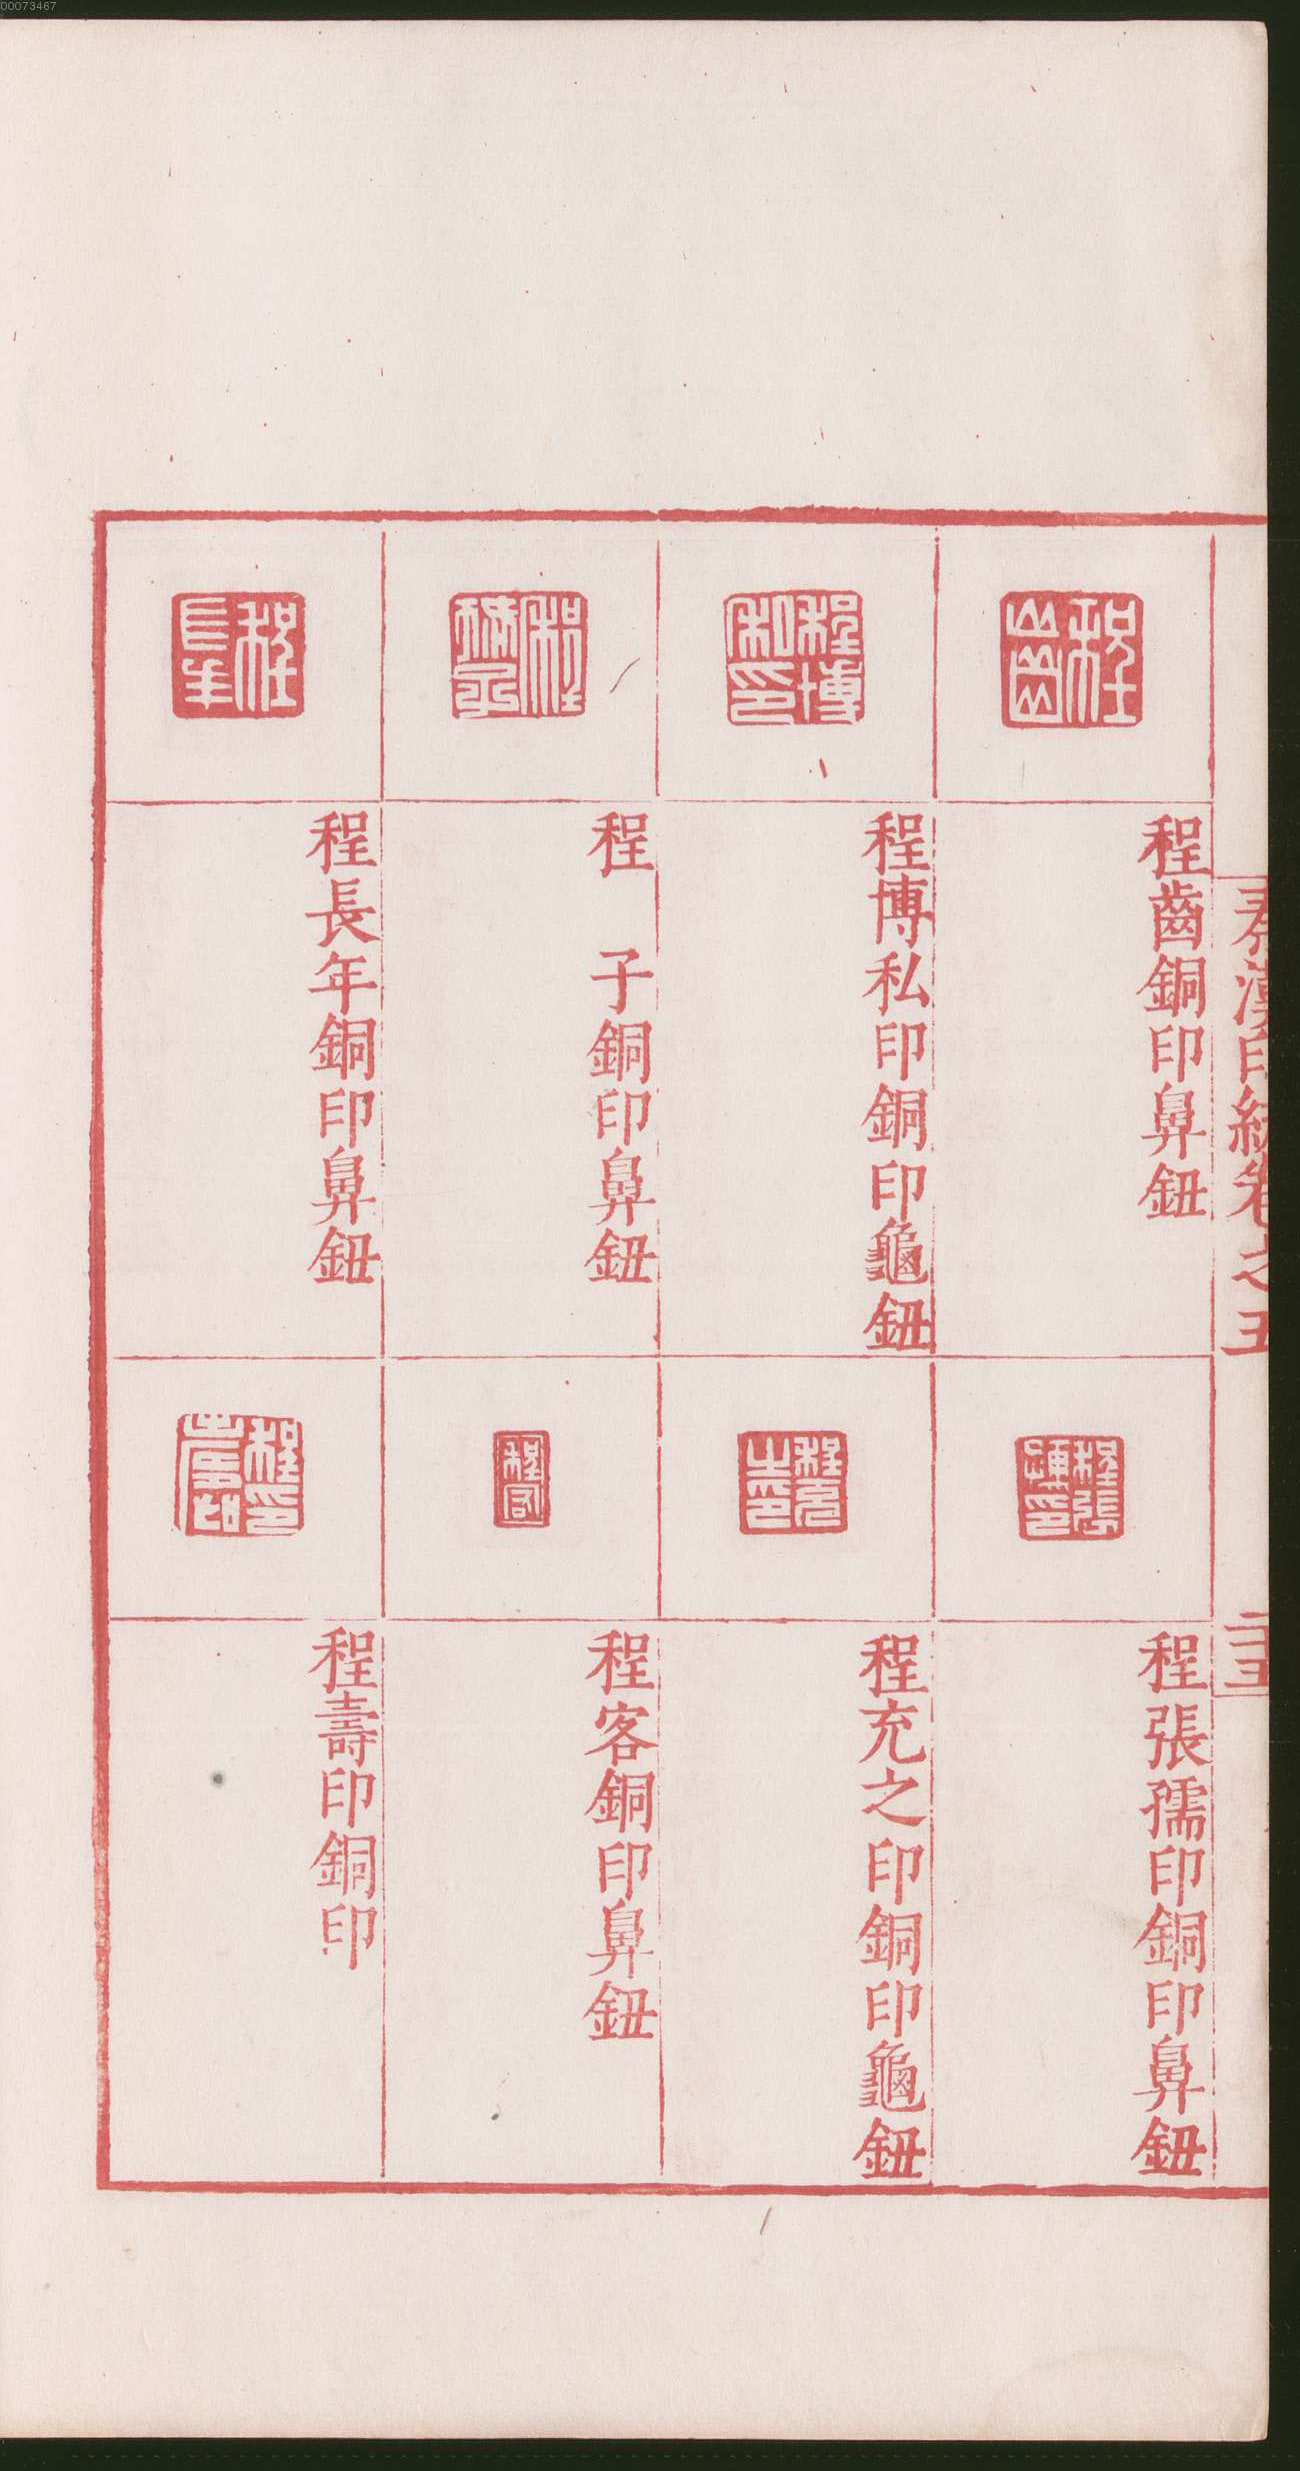 00073467
秦漢印統卷之五
二十五
程齒銅印鼻鈕
程張孺印銅印鼻鈕
程博私印銅印龜鈕
程充之印銅印龜鈕
程 子銅印鼻鈕
程客銅印鼻鈕
程長年銅印鼻鈕
程壽印銅印